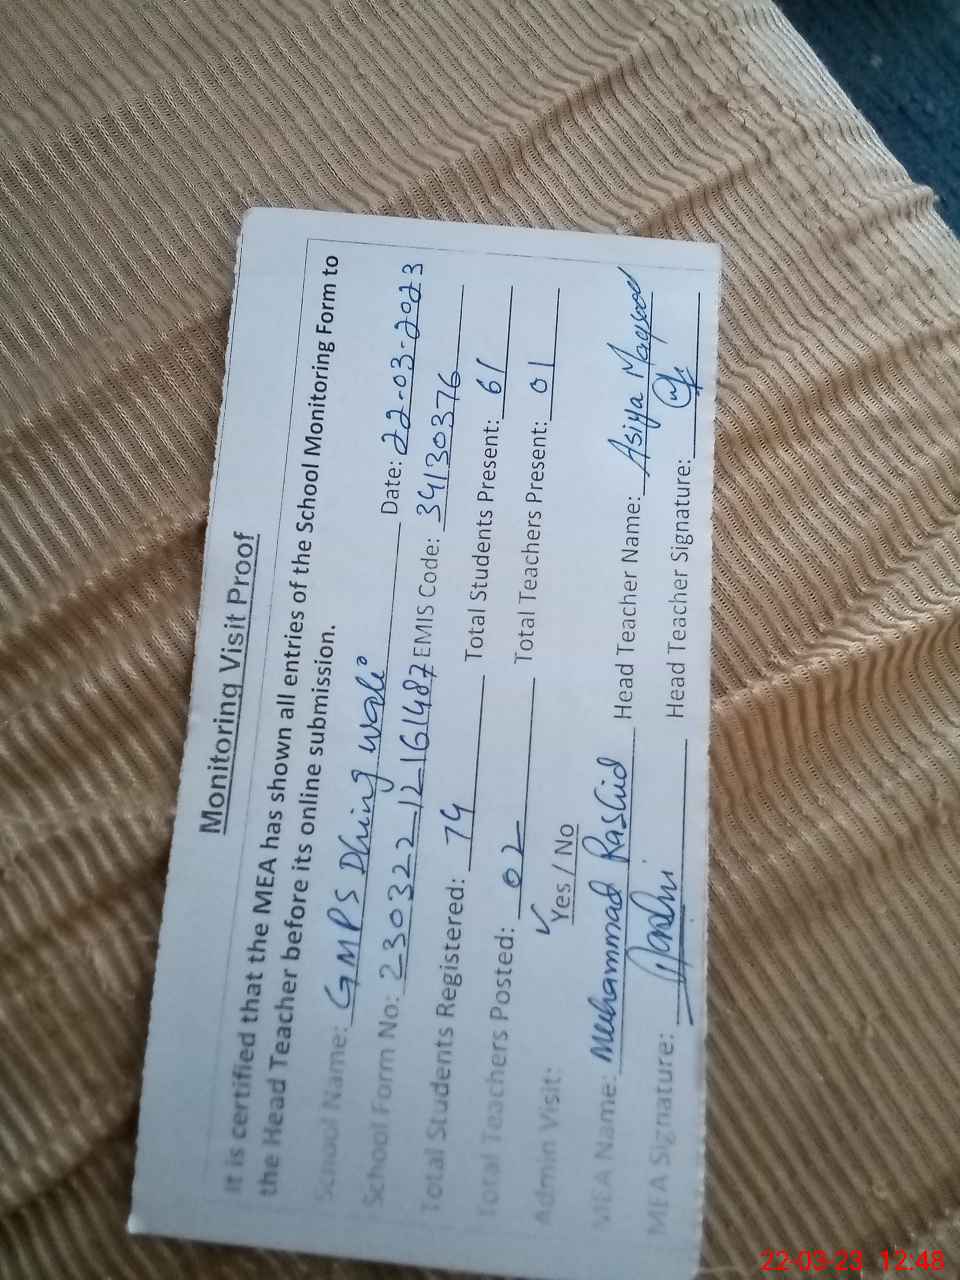 Monitoring Visit Proof
It is certified that the MEA has shown all entries of the School Monitoring Form to
the Head Teacher before its online submission.
School Name: GMPS Dhing wali Date: 22-03-2023
School Form No: 230322_12_161487 EMIS Code: 34130376
Total Students Registered: 74 Total Students Present: 61
Total Teachers Posted: 02 Total Teachers Present: 01
Admin Visit: ✓ Yes / No
MEA Name: Muhammad Rashid Head Teacher Name: Asiya Maqsood
MEA Signature: Head Teacher Signature:
22-03-23 12:48